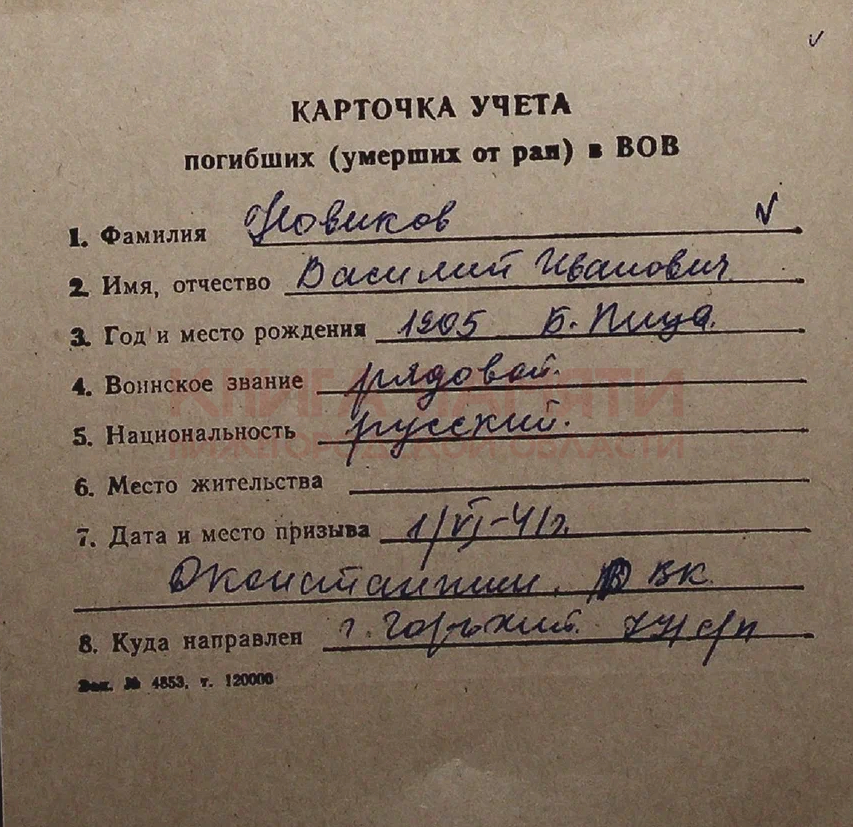 КАРТОЧКА УЧЕТА
погибших (умерших от ран) в ВОВ
1. Фамилия Новиков
2. Имя, отчество Василий Иванович
3. Год и место рождения 1905 Б. Пица.
4. Воинское звание рядовой.
КНИГА ПАМЯТИ
5. Национальность русский.
НИЖЕГОРОДСКОЙ ОБЛАСТИ
6. Место жительства
7. Дата и место призыва 1/VI-41г.
ВК.
8. Куда направлен г. Горький с/п
Зак. № 4853, т. 120000